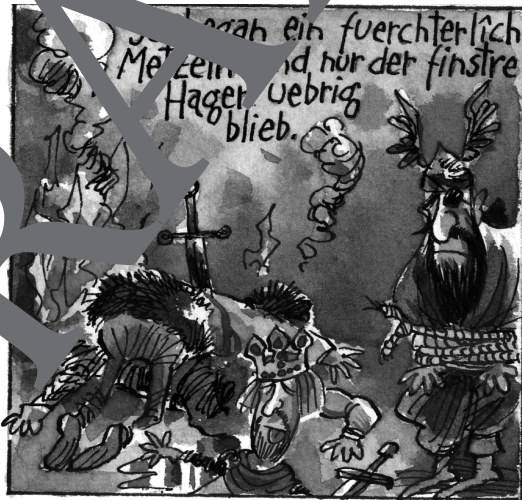 began ein fuerchterlich
Metzeln und nur der finstre
Hagen uebrig
blieb.